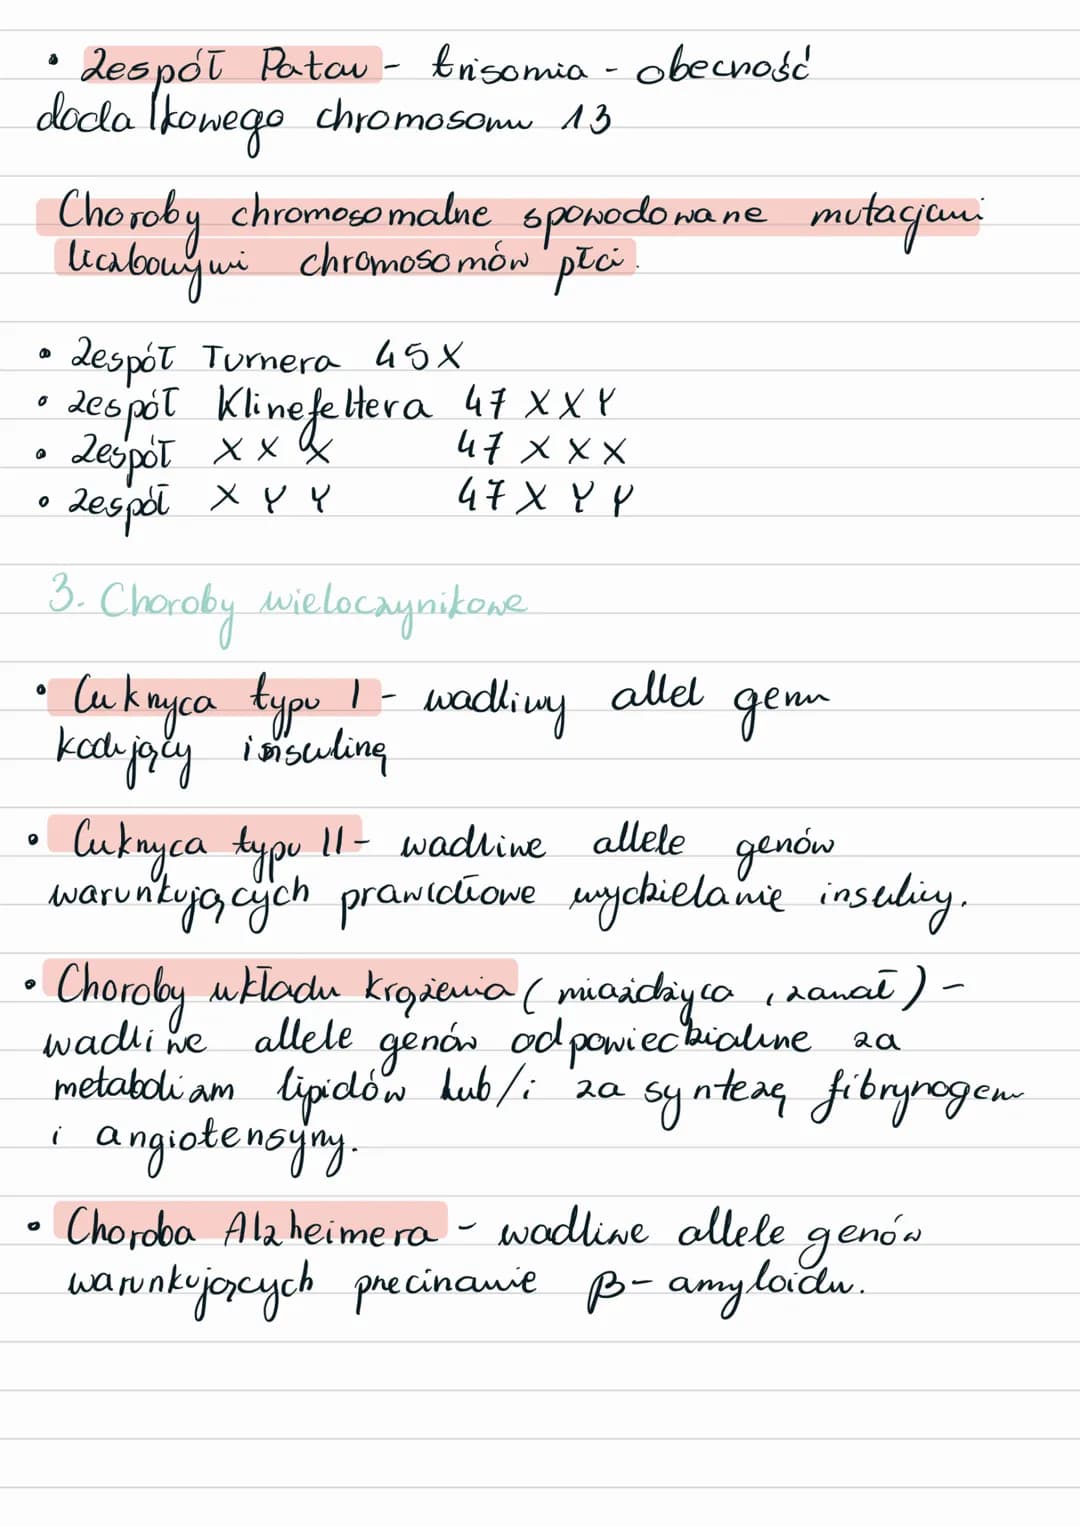 • Zespół Patau - trisomia - obecność
dodatkowego chromosomu 13
Choroby chromosomalne spowodowane mutacjami
liczbowymi chromosomów płci.
• Zespół Turnera 45X
• Zespół Klinefeltera 47 XXY
• Zespół XXX 47 XXX
• Zespół XYY 47 XYY
3. Choroby wieloczynikowe
• Cukrzyca typu I - wadliwy allel genu
kodujący insulinę
• Cukrzyca typu II - wadliwe allele genów
warunkujących prawidłowe wydzielanie insuliny.
• Choroby układu krążenia (miażdżyca, zawał) -
wadliwe allele genów odpowiedzialne za
metabolizm lipidów lub/i za syntezą fibrynogenu
i angiotensyny.
• Choroba Alzheimera - wadliwe allele genów
warunkujących przecinanie β - amyloidu.